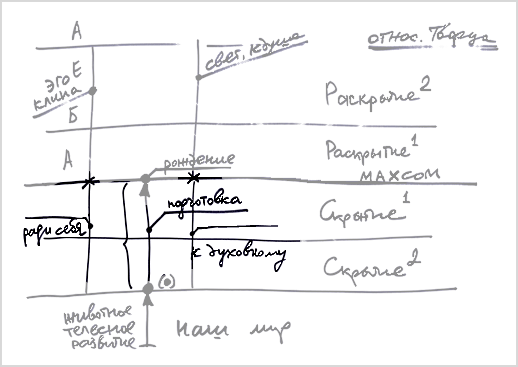 А
относ. Творца
свет, кдуша
эго Е
клипа
Раскрытие 2
Б
А
рождение
Раскрытие 1
МАХСОМ
подготовка
Скрытие 1
ради себя
к духовному
Скрытие 2
(•)
животное
телесное
развитие
Наш мир